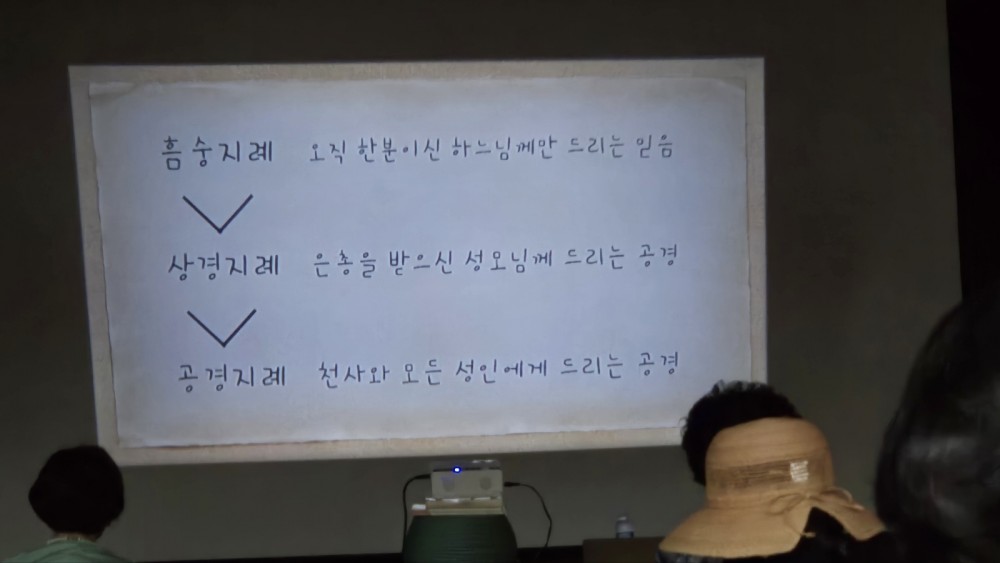 흠숭지례 오직 한분이신 하느님께만 드리는 믿음
상경지례 은총을 받으신 성모님께 드리는 공경
공경지례 천사와 모든 성인에게 드리는 공경